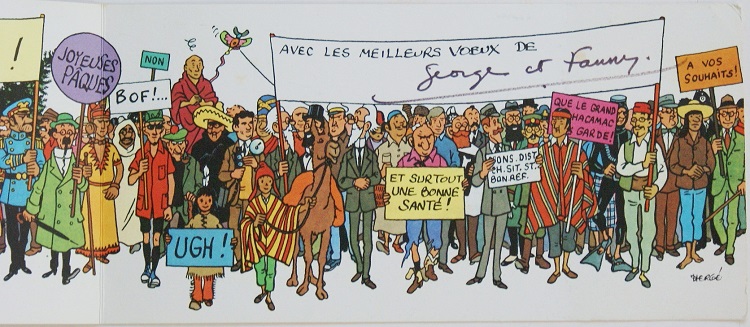 !
JOYEUSES
PÂQUES
NON
BOF!...
AVEC LES MEILLEURS VOEUX DE
George et Fanny.
A VOS
SOUHAITS!
QUE LE GRAND
HACAMAC
GARDE!
ET SURTOUT
UNE BONNE
SANTÉ!
IONS. DIST
CH. SIT. ST.
BON. REF.
UGH!
HERGÉ